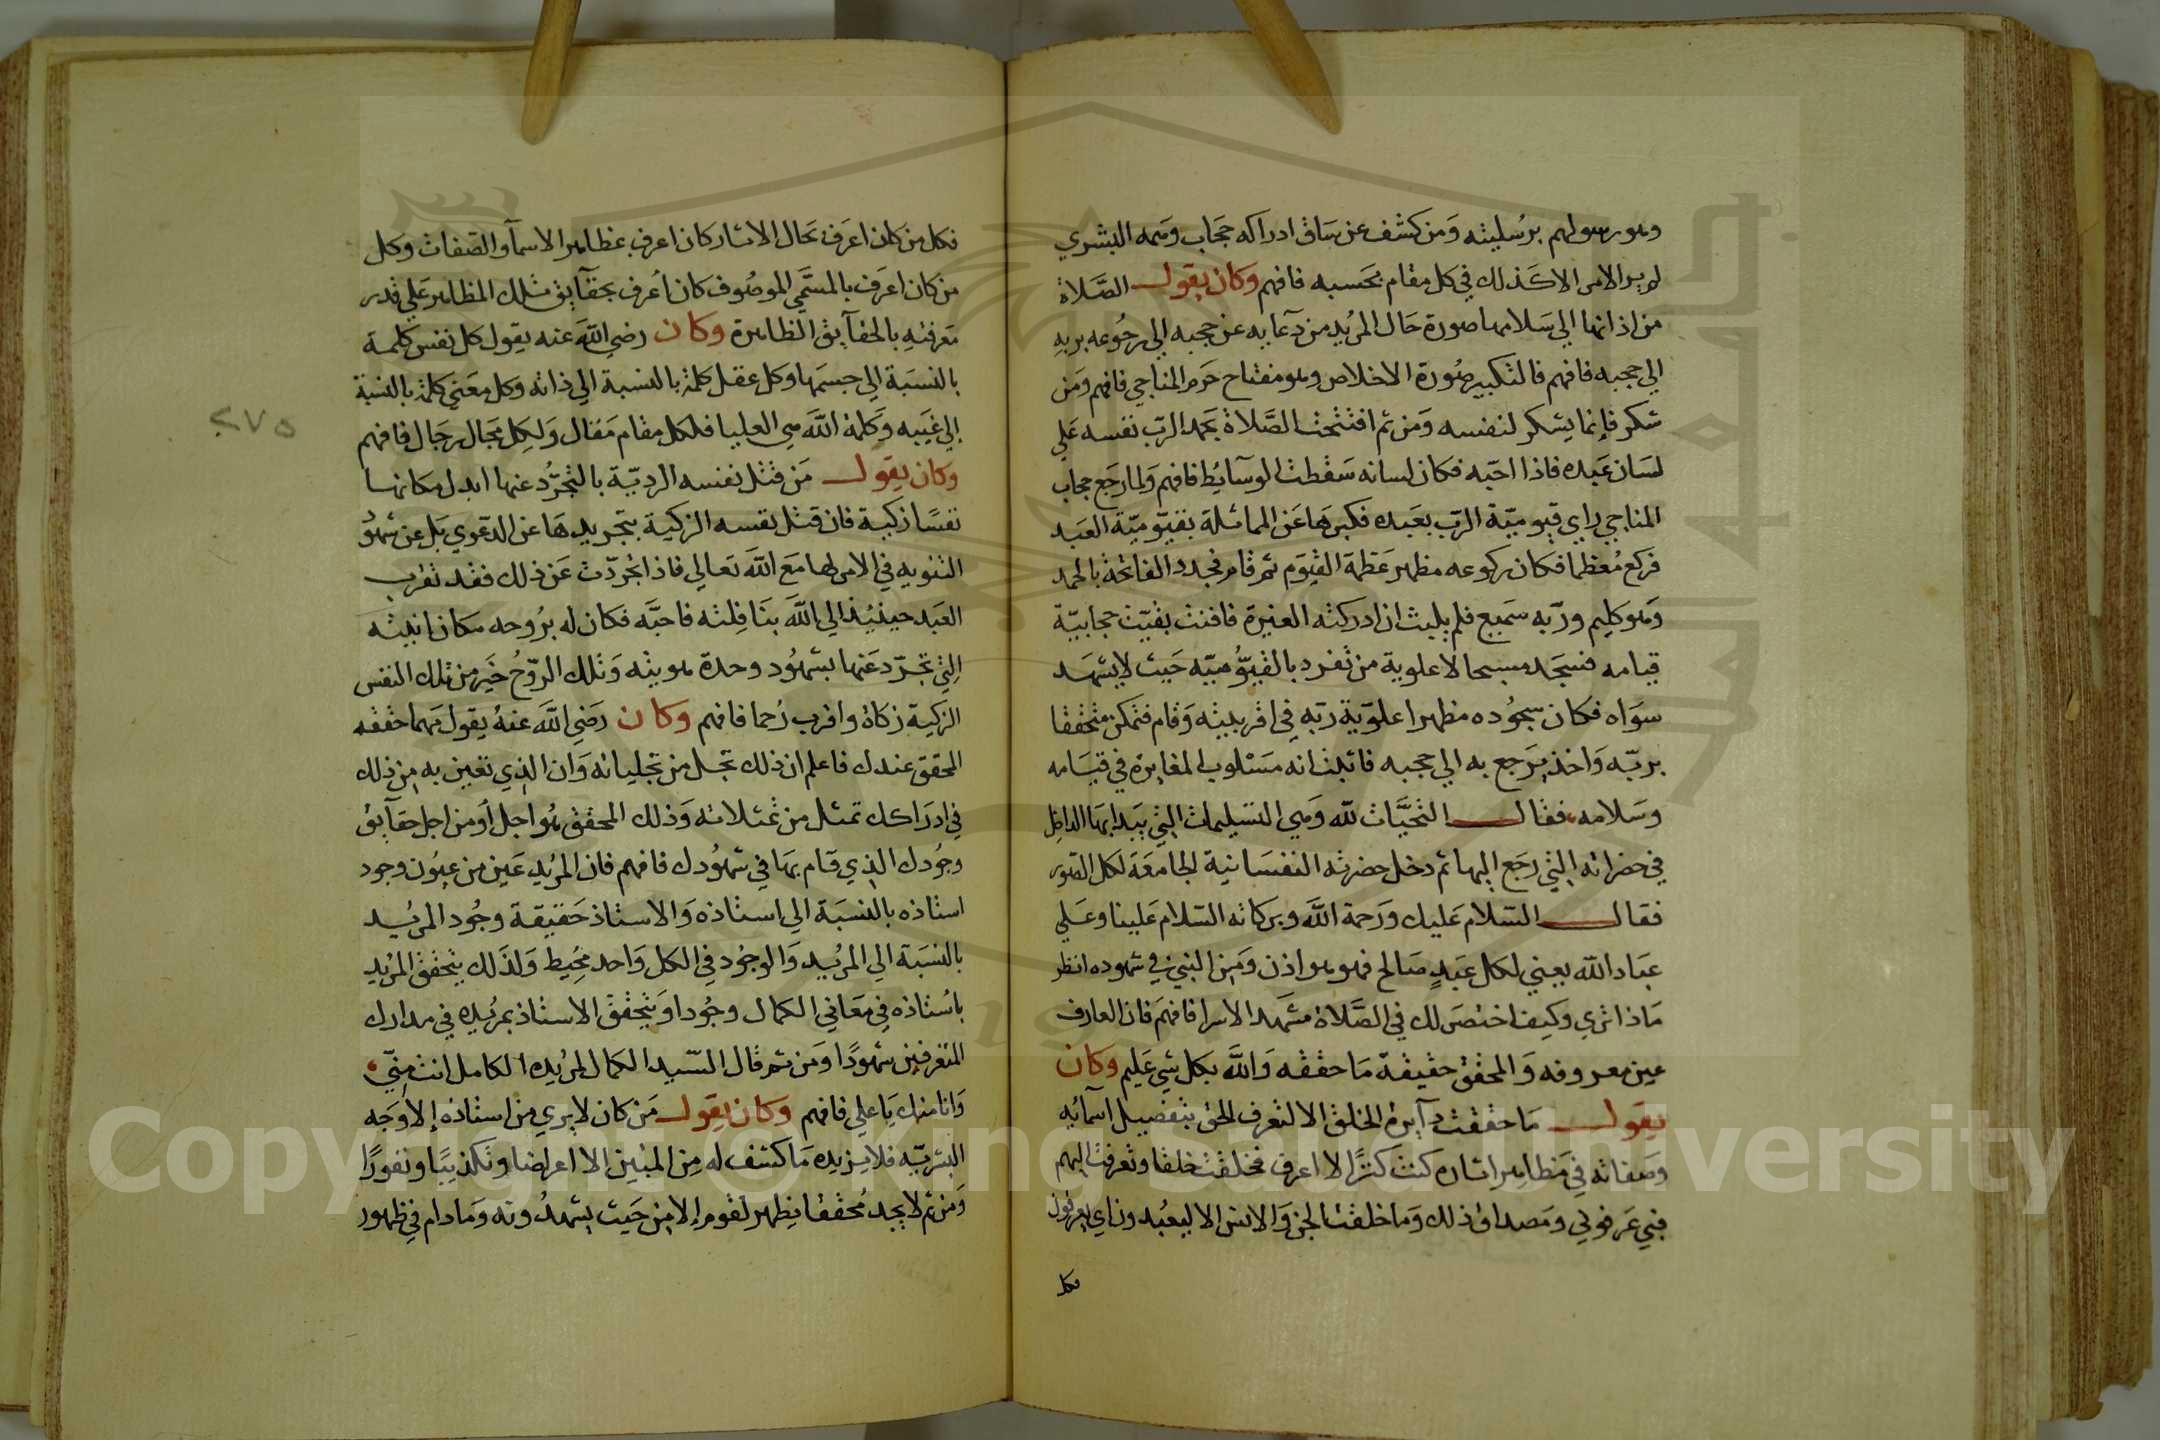 وهو رسولهم برسليته ومن كشف عن ساق ادراكه حجاب وهمه البشري
لم ير الامر الا كذلك في كل مقام بحسبه فافهم وكان يقول الصلاة
من اذانها الي سلامها صورة حال المريد من دعايه عن حجبه الي رجوعه بربه
الي حجبه فافهم فالتكبير صورة الاخلاص وهو مفتاح حرم المناجي فافهم ومن
شكر فانما يشكر لنفسه ومن ثم افتتحت الصلاة بحمد الرب نفسه علي
لسان عبده فاذا احبه فكان لسانه سقطت الوسآيط فافهم ولما رجع حجاب
المناجي راي قيوميّة الرب بعبده فكبرها عن المماثلة بقيوميّة العبد
فركع معظما فكان ركوعه مظهر عظمة القيوم ثم قام فجدد الفاتحة بالحمد
وهو كليم وربه سميع فلم يلبث ان ادركته الغيرة فافنت بقيّت حجابيّة
قيامه فسجد مسبحا لاعلوية من تفرد بالقيّوميّه حيث لا يشهد
سواه فكان سجوده مظهرا علويّة ربه في اقربيته وقام فتمكن متحققا
بربّه واخذ يرجع به الي حجبه فائلذانه مسلوب المغايرة في قيامه
وسلامه فقال التحيّات لله وهي التسليمات التي يبدا بها الداخل
في حضراته التي رجع اليها ثم دخل حضرته النفسانية الجامعة لكل الصور
فقال السلام عليك ورحمة الله وبركاته السلام علينا وعلي
عباد الله يعني لكل عبد صالح فهو هو اذن ومن النبي في شهوده انظر
ماذا تري وكيف اختصر لك في الصلاة مشهد الاسرا فافهم فان العارف
عين معروفه والمحقق حقيقة ما حققه والله بكل شي عليم وكان
يقول ما حققت دآيرة الخلق الا لتعرف الحق بتفصيل اسمآيه
وصفاته في مظاهر اثاره كنت كنزا لا اعرف فخلقت خلقا وتعرفت اليهم
فبي عرفوني ومصداق ذلك وما خلقت الجن والانس الا ليعبدون اي يعرفون
فكل
فكل من كان اعرف بحال الاثار كان اعرف بمظاهر الاسمآ والصفات وكل
من كان اعرف بالمسمي الموصوف كان اعرف بحقآيق تلك المظاهر علي قدر
معرفته بالحقآيق الظاهرة وكان رضي الله عنه يقول كل نفس كلمة
بالنسبة الي جسمها وكل عقل كلمة بالنسبة الي ذاته وكل معني كلمة بالنسبة
الي غيبه وكلمة الله هي العليا فلكل مقام مقال ولكل مجال رجال فافهم
٢٧٥
وكان يقول من قتل نفسه الرديّة بالتجرّد عنها ابدل مكانها
نفسا زكية فان قتل نفسه الزكية بتجريدها عن الدعوي بل عن شهو
الثنويه في الامر لها مع الله تعالي فاذا تجردت عن ذلك فقد تقرب
العبد حينيذ الي الله بنافلته فاحبّه فكان له بروحه مكان انيته
التي تجرّد عنها بشهود وحدة هويته وتلك الروح خير من تلك النفس
الزكية زكاة واقرب رحما فافهم وكان رضي الله عنه يقول مهما حققه
المحقق عندك فاعلم ان ذلك تجل من تجلياته وان الذي تعين به من ذلك
في ادراكك تمثل من تمثلاته وذلك المحقق هو اجل او من اجل حقآيق
وجودك الذي قام بها في شهودك فافهم فان المريد عين من عيون وجود
استاذه بالنسبة الي استاذه والاستاذ حقيقة وجود المريد
بالنسبة الي المريد والوجود في الكل واحد محيط ولذلك يتحقق المريد
باستاذه في معاني الكمال وجودا ويتحقق الاستاذ بمريده في مدارك
المتعرفين شهودا ومن ثم قال السيد الكمال لمريده الكامل انت منّي
وانا منك يا علي فافهم وكان يقول من كان لا يري من استاذه إلا وجه
البشريّه فلا يزيده ما كشف له من المبين الا اعراضا وتكذيبا ونفورا
ومن ثم لا يجد محققا يظهر لقوم إلا من حيث يشهدونه وما دام في ظهور